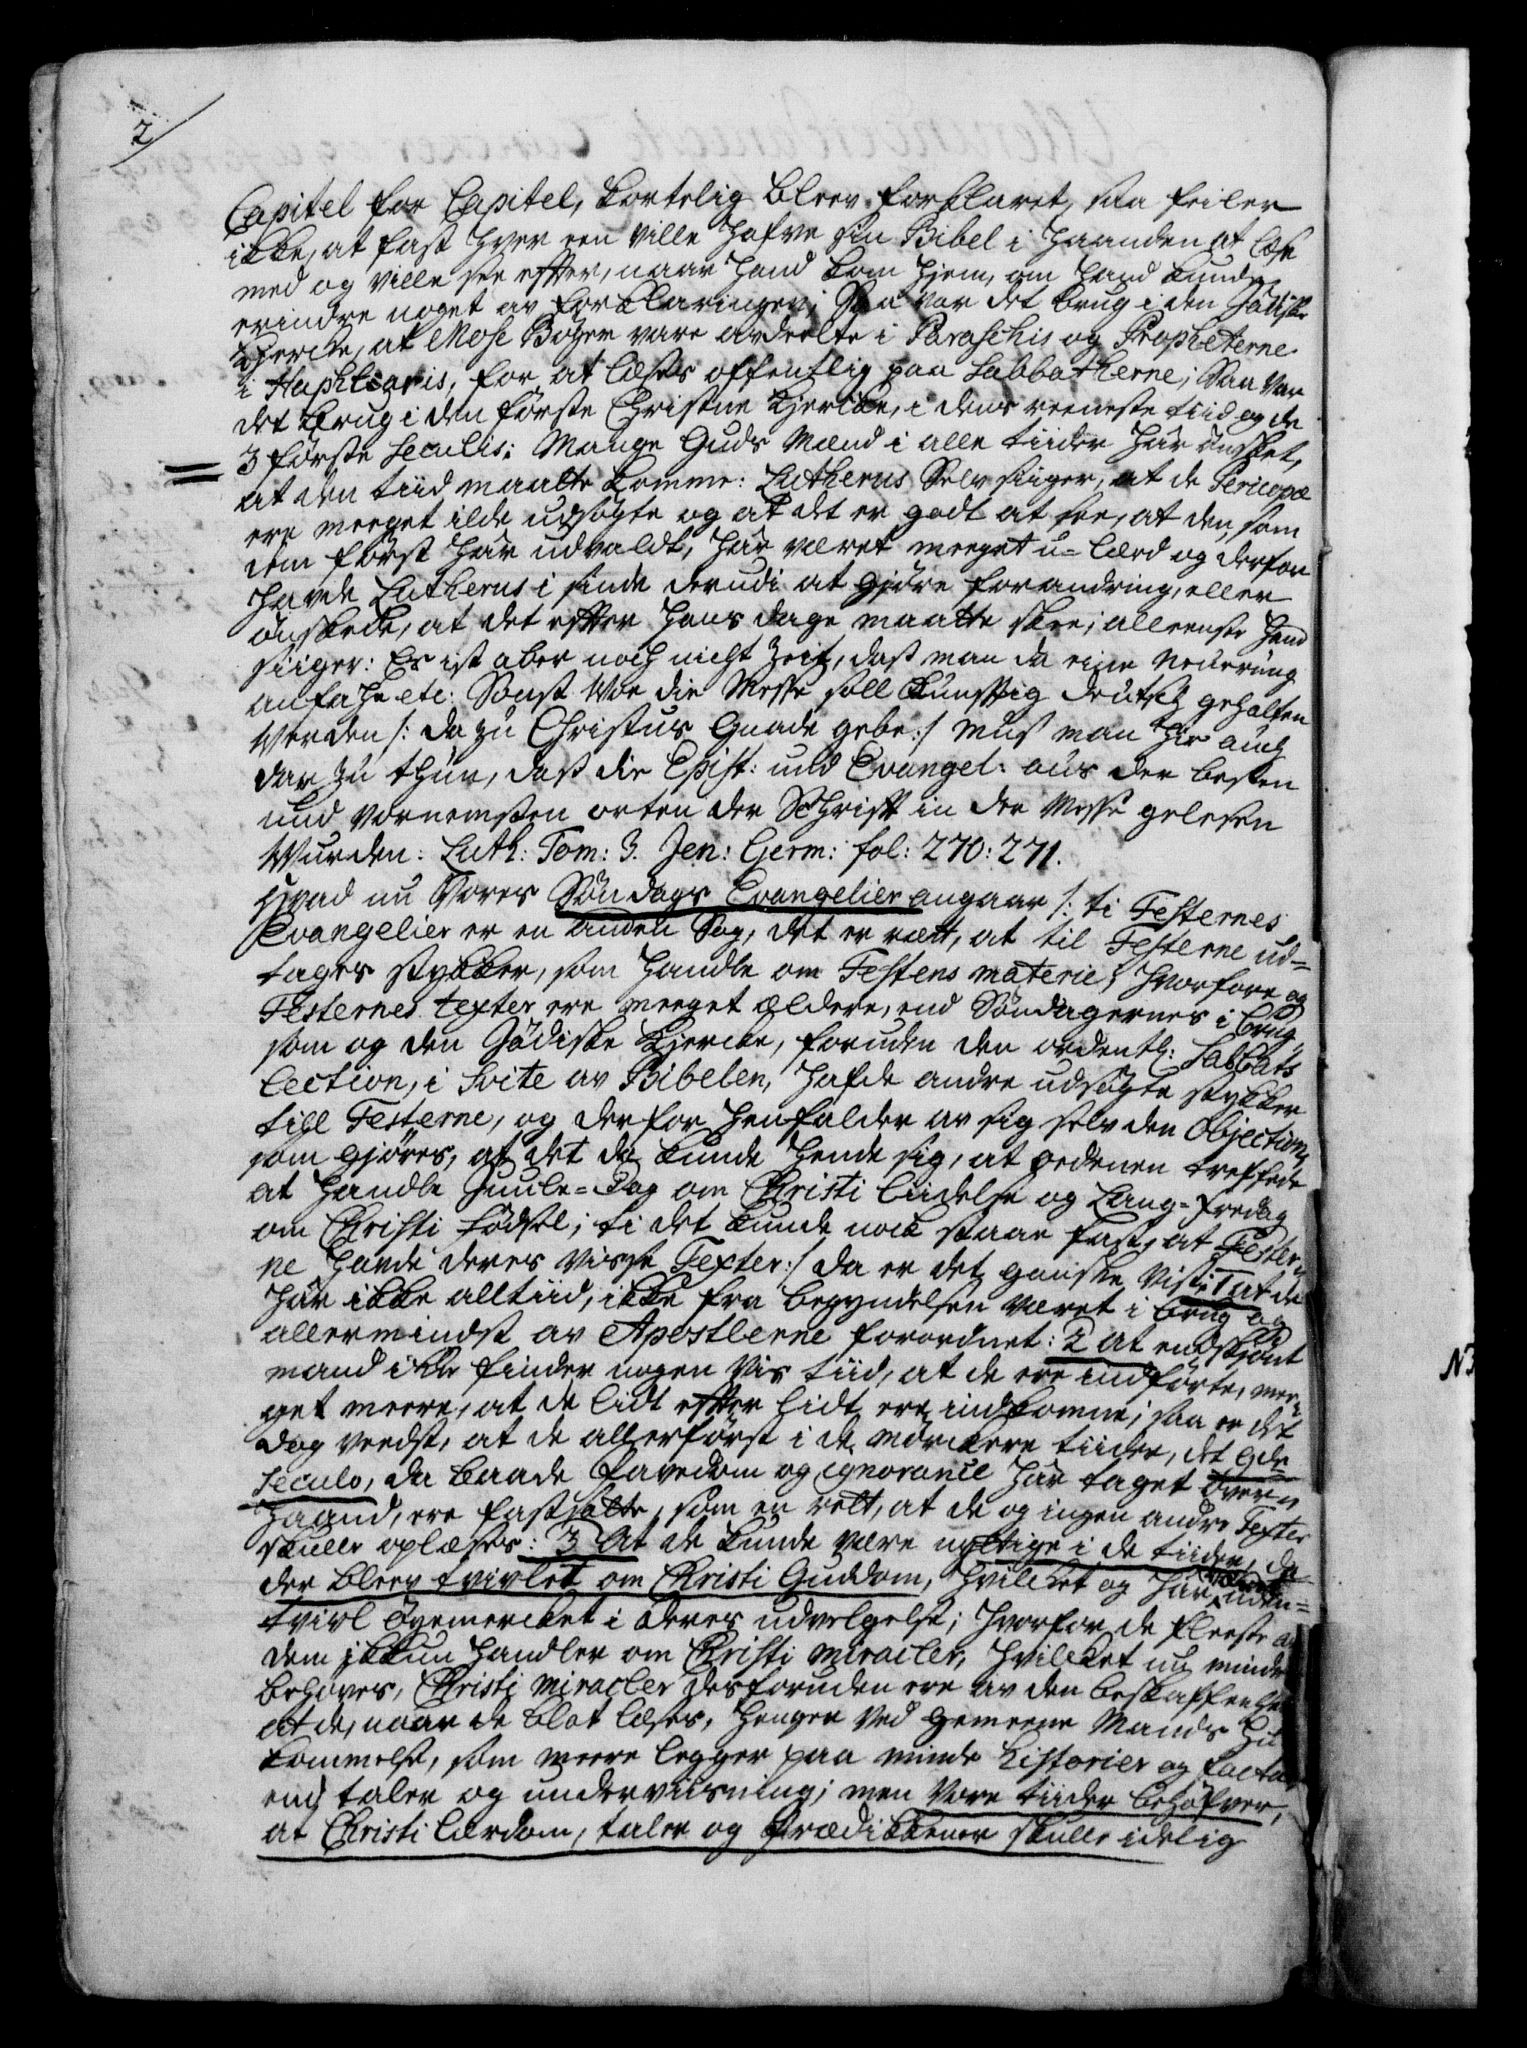 2
Capitel for Capitel, kortelig blev forklaret, saa feiler
ikke, at fast hver een ville hafve sin Bibel i haanden at læse
med og ville see effter, naar hand kom hjem, om hand kunde
erindre noget av forklaringen; Saa var det brug i den Jødiske
Kjercke, at Mose Bøger vare avdeelte i Paraschis og Propheterne
i Haphtaris, for at læses offentlig paa Sabbatherne; Saa var
det brug i den første Christne Kjercke, i dens reeneste tiid og de
3 første Seculis; Mange Guds Mænd i alle tiider har ønsket,
at den tiid maatte komme: Lutherus Selv siiger, at de Pericopæ
ere meeget ilde udsøgte og at det er godt at see, at den, som
dem først har udvaldt, har været meeget u-lærd og derfor
havde Lutherus i sinde derudi at gjøre forandring, eller
ønskede, at det effter hans dage maatte skee; alleenste hand
siiger: Es ist aber noch nicht Zeit, dass man da eine Neuerung
anfahe etc. Sonst wo die Messe soll künfftig deutsch gehalten
werden /: da zu Christus Gnade gebe :/ muss man hie auch
dar zu thun, dass die Epist: und Evangel: aus der besten
und vornemsten orten der Schrifft in der Messe gelesen
wurden: Luth: Tom: 3. Jen: Germ: fol: 270: 271.
Hvad nu vores Søndags Evangelier angaar /: ti Festernes
Evangelier er en anden Sag, det er rætt, at til Festerne ud=
tages stykker, som handle om Festens materie; hvorfore og
Festernes texter ere meeget ældere, end Søndagernes i brug
som og den Jødiske Kjercke, foruden den ordentl: Sabbats
Lection, i Svite av Bibelen, hafde andre udsøgte stykker
till Festerne, og derfor henfalder av sig selv den Objection,
som gjøres, at det da kunde hende sig, at ordenen treffede
at handle Juule-Dag om Christi liidelse og Lang-fredag
om Christi fødsel; ti det kunde nock staae fast, at Fester=
ne havde deres visse Texter :/ da er det ganske vist: 1 at de
har ikke alltiid, ikke fra begyndelsen været i brug og
allermindst av Apostlerne forordnet: 2 at endskjønt
mand icke finder nogen vis tiid, at de ere indførte, mee=
get meere, at de lidt effter lidt ere indkomne; saa er det
dog veedst, at de allerførst i de mørckere tiider, det 9de
Seculo, da baade Pavedom og ignorance har taget over=
haand, ere fastsatte, som en rett, at de og ingen andre Texter
skulle oplæses: 3 At de kunde være nyttige i de tiider, da
der blev tvivlet om Christi Guddom, hvilcket og har været uden=
tvivl øyemercket i deres udvelgelse; hvorfor de fleeste av
dem ickun handler om Christi miracler, hvilcket nu mindre
behøves, Christi miracler desforuden ere av den beskaffenhed
at de, naar de blot læses, henger ved gemeene Mands hu
kommelse, som meere legger paa minde historier og facta
end taler og underviisning; men vore tiider behøfver,
at Christi lærdom, taler og Prædickener skulle idelig
N3